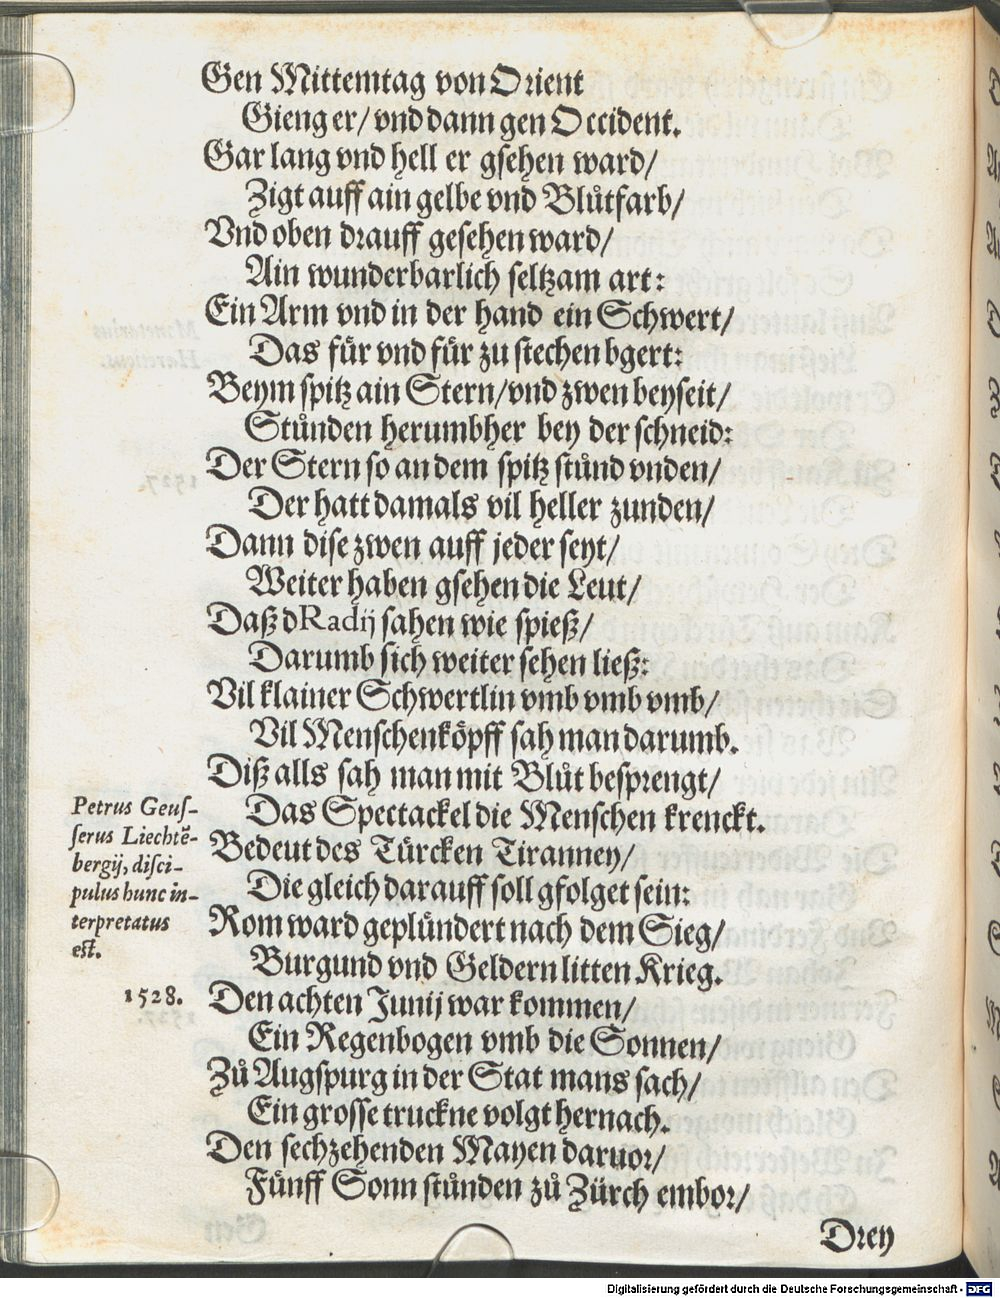 Gen Mittemtag von Orient
Gieng er/ vnd dann gen Occident.
Gar lang vnd hell er gsehen ward/
Zigt auff ain gelbe vnd Blůtfarb/
Vnd oben drauff gesehen ward/
Ain wunderbarlich seltzam art:
Ein Arm vnd in der hand ein Schwert/
Das für vnd für zu stechen bgert:
Beym spitz ain Stern/vnd zwen beyseit/
Stůnden herumbher bey der schneid:
Der Stern so an dem spitz stůnd vnden/
Der hatt damals vil heller zunden/
Dann dise zwen auff jeder seyt/
Weiter haben gsehen die Leut/
Daß d Radij sahen wie spieß/
Darumb sich weiter sehen ließ:
Vil klainer Schwertlin vmb vmb vmb/
Vil Menschenköpff sah man darumb.
Diß alls sah man mit Blůt besprengt/
Das Spectackel die Menschen krenckt.
Petrus Geus-
serus Liechtē-
bergij, disci-
pulus hunc in-
terpretatus
est.
Bedeut des Türcken Tiranney/
Die gleich darauff soll gfolget sein:
Rom ward geplündert nach dem Sieg/
Burgund vnd Geldern litten Krieg.
1528.
Den achten Junij war kommen/
Ein Regenbogen vmb die Sonnen/
Zů Augspurg in der Stat mans sach/
Ein grosse truckne volgt hernach.
Den sechzehenden Mayen daruor/
Fünff Sonn stůnden zů Zürch embor/
Drey
Digitalisierung gefördert durch die Deutsche Forschungsgemeinschaft - DFG